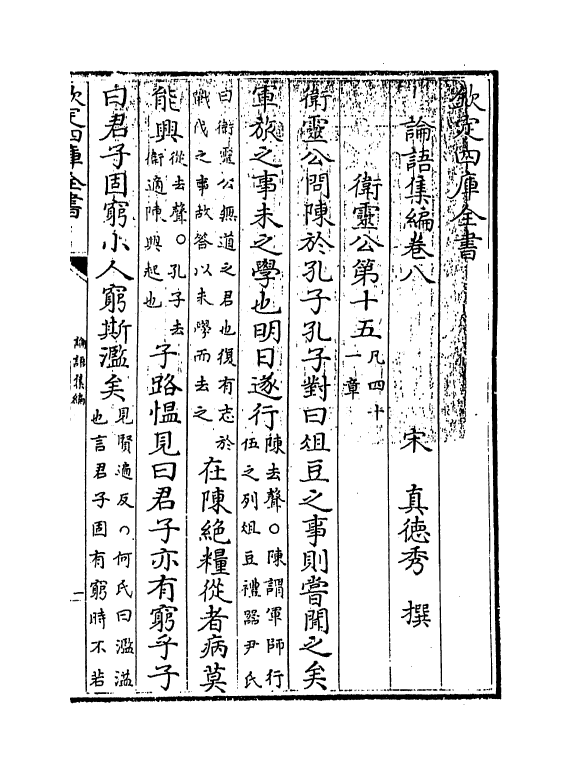 欽定四庫全書
論語集編卷八
宋 真德秀 撰
衛靈公第十五凡四十一章
衛靈公問陳於孔子孔子對曰俎豆之事則嘗聞之矣
軍旅之事未之學也明日遂行陳去聲○陳謂軍師行伍之列俎豆禮器尹氏
曰衛靈公無道之君也復有志於戰伐之事故答以未學而去之在陳絶糧從者病莫
能興從去聲○孔子去衛適陳興起也子路慍見曰君子亦有窮乎子
曰君子固窮小人窮斯濫矣見賢遍反○何氏曰濫溢也言君子固有窮時不若
欽定四庫全書
論語集編
一